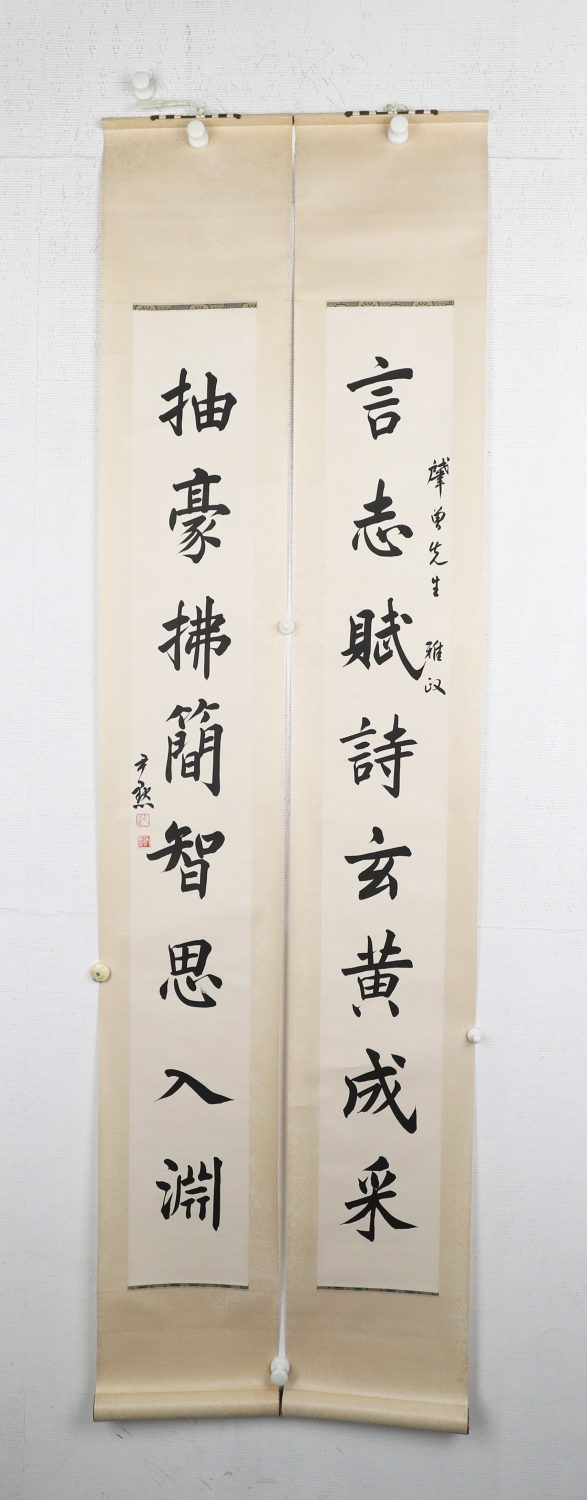 言志賦詩玄黄成采
曾先生 雅政
抽豪拂簡智思入淵
尹默